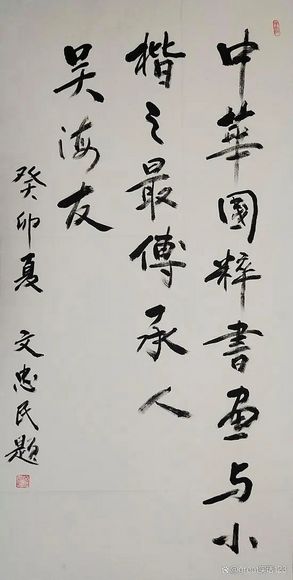 中華國粹書画与小
楷之最傳承人
吴海友
癸卯夏 文忠民題